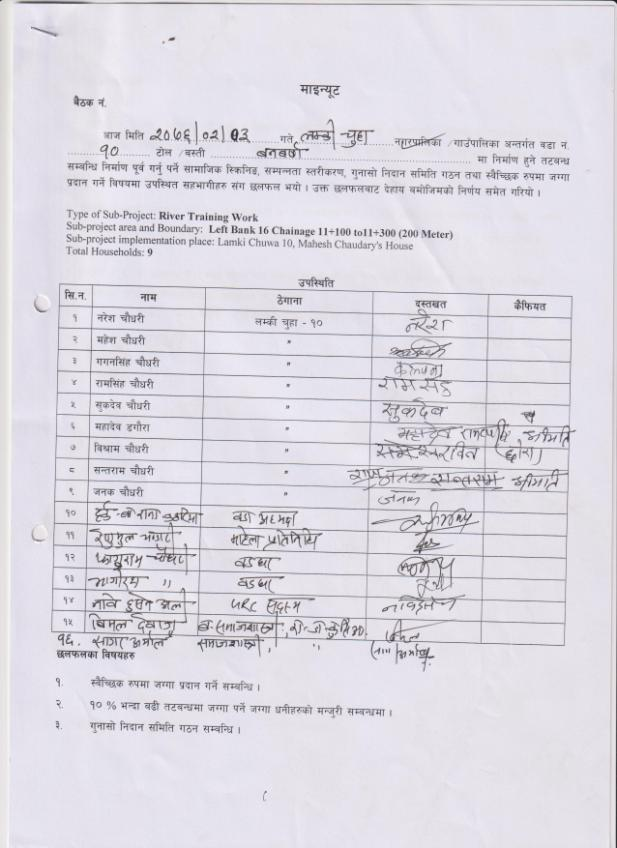 माइन्यूट
बैठक नं.
आज मिति २०७६/०२/१३ गते लम्की चुहा नगरपालिका /गाउँपालिका अन्तर्गत वडा नं.
१० टोल /बस्ती बनबर्षा मा निर्माण हुने तटबन्ध
सम्बन्धि निर्माण पूर्व गर्नु पर्ने सामाजिक स्क्रिनिङ, सम्पन्नता स्तरीकरण, गुनासो निदान समिति गठन तथा स्वैच्छिक रुपमा जग्गा
प्रदान गर्ने विषयमा उपस्थित सहभागीहरु संग छलफल भयो । उक्त छलफलबाट देहाय बमोजिमको निर्णय समेत गरियो ।
Type of Sub-Project: River Training Work
Sub-project area and Boundary: Left Bank 16 Chainage 11+100 to11+300 (200 Meter)
Sub-project implementation place: Lamki Chuwa 10, Mahesh Chaudary's House
Total Households: 9
उपस्थिति
सि.न. नाम ठेगाना दस्तखत कैफियत
१ नरेश चौधरी लम्की चुहा - १० नरेश
२ महेश चौधरी "
३ गगनसिंह चौधरी " कल्पना
४ रामसिंह चौधरी " राम सिंह
५ सुकदेव चौधरी " सुकदेव
६ महादेव डगौरा " महादेव श्रीमति
७ विश्राम चौधरी " (छोरा)
८ सन्तराम चौधरी " सन्तराम श्रीमति
९ जनक चौधरी " जनक
१० वडा अध्यक्ष
११ महिला प्रतिनिधि
१२ वडघर
१३ " वडघर
१४ सदस्य
१५ बिमल
१६. समाजशास्त्री "
छलफलका विषयहरु
१. स्वैच्छिक रुपमा जग्गा प्रदान गर्ने सम्बन्धि ।
२. १० % भन्दा बढी तटबन्धमा जग्गा पर्ने जग्गा धनीहरुको मन्जुरी सम्बन्धमा ।
३. गुनासो निदान समिति गठन सम्बन्धि ।